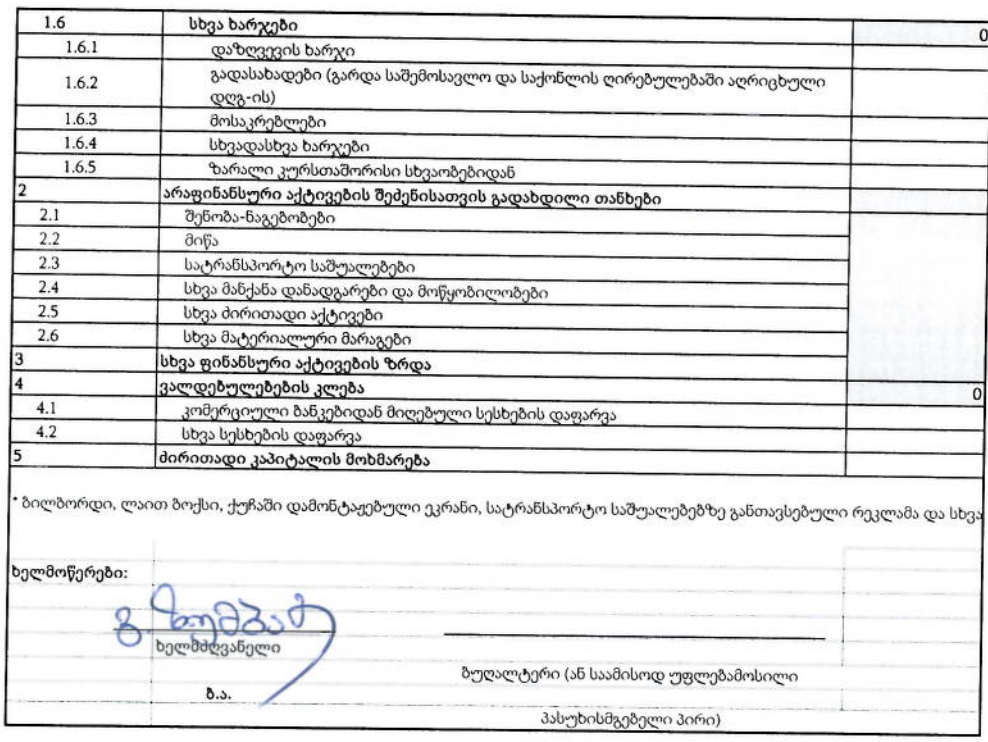 1.6 სხვა ხარჯები 0
1.6.1 დაზღვევის ხარჯი
1.6.2 გადასახადები (გარდა საშემოსავლო და საქონლის ღირებულებაში აღრიცხული
დღგ-ის)
1.6.3 მოსაკრებლები
1.6.4 სხვადასხვა ხარჯები
1.6.5 ზარალი კურსთაშორისი სხვაობებიდან
2 არაფინანსური აქტივების შეძენისათვის გადახდილი თანხები
2.1 შენობა-ნაგებობები
2.2 მიწა
2.3 სატრანსპორტო საშუალებები
2.4 სხვა მანქანა დანადგარები და მოწყობილობები
2.5 სხვა ძირითადი აქტივები
2.6 სხვა მატერიალური მარაგები
3 სხვა ფინანსური აქტივების ზრდა
4 ვალდებულებების კლება 0
4.1 კომერციული ბანკებიდან მიღებული სესხების დაფარვა
4.2 სხვა სესხების დაფარვა
5 ძირითადი კაპიტალის მოხმარება
* ბილბორდი, ლაით ბოქსი, ქუჩაში დამონტაჟებული ეკრანი, სატრანსპორტო საშუალებებზე განთავსებული რეკლამა და სხვა
ხელმოწერები:
ხელმძღვანელი
ბუღალტერი (ან საამისოდ უფლებამოსილი
ბ.ა.
პასუხისმგებელი პირი)